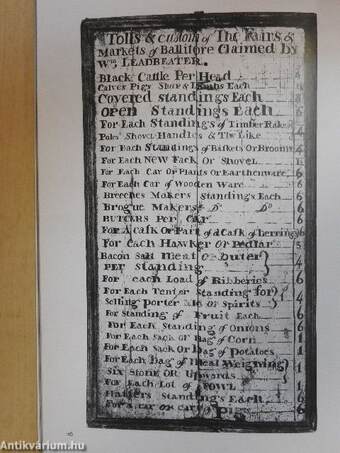 Tolls & custom of The Fairs &
Markets of Ballitore Claimed by
Wm LEADBEATER.
Black Cattle Per Head
Calves Pigs Sheep & Lambs Each
Covered standings Each
open Standings Each 6
For Each Standings of Timber Rakes
Poles Shovel Handles & The Like
For Each Standings of Baskets Or Brooms
For Each NEW Pack Or Shovel
For Each Car Or Plants Or Earthenware 6
For Each Car of Wooden Ware 6
Breeches Makers Standings Each 6
Brogue Makers Do Do 6
BUTCERS Per Car 6
For A Cask Or Part of a Cask of Herrings
For each Hawker Or Pedlar
Bacon Salt Meat Or Buter
PER Standing
For each Load of Ribberies 6
For Each Tenter Standing for
Selling Porter Ale or Spirits
For Standing of Fruit Each
For Each Standing of Onions 6
For Each Sack Or Bag of Corn 1
For Each Sack Or Bag of Potatoes 1
For Each Bag of Meal Weighing
Six Stone OR Upwards 1
For Each Lot of FOWL 1
Hatters Standings Each 6
For a Car or Cart of Pigs 6
Antikvárium.hu